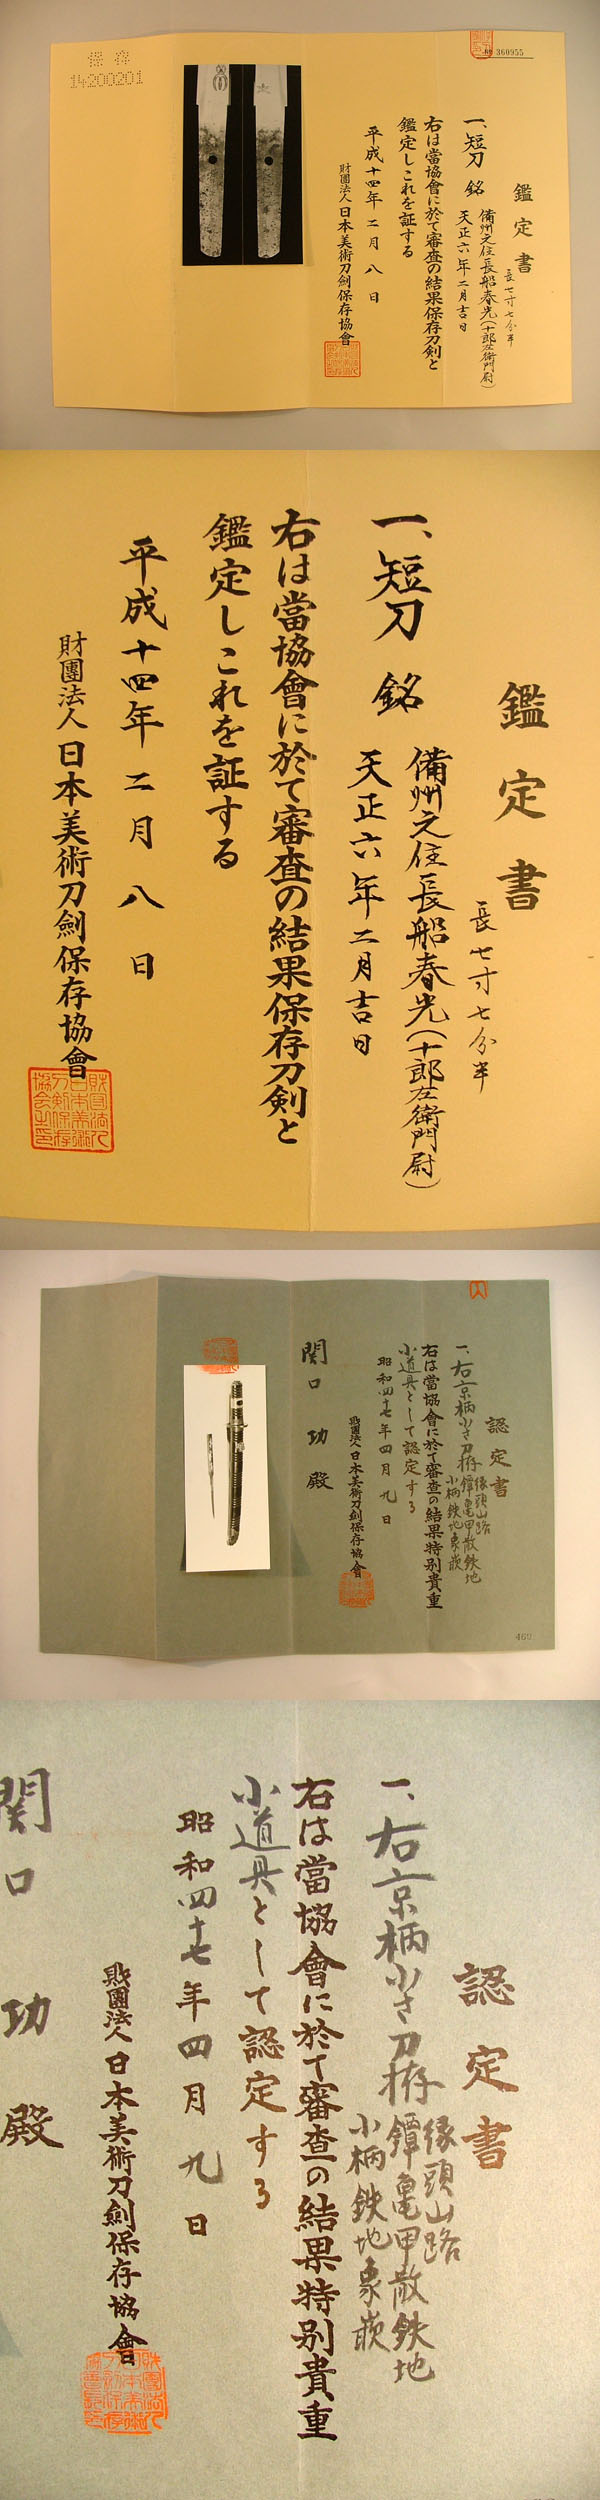 保存
14200201
360955
鑑定書
長七寸七分半
一、短刀 銘 備州之住長船春光(十郎左衛門尉)
天正六年二月吉日
右は當協會に於て審査の結果保存刀剣と
鑑定しこれを証する
平成十四年二月八日
財團法人日本美術刀劍保存協會
鑑定書
長七寸七分半
一、短刀 銘 備州之住長船春光(十郎左衛門尉)
天正六年二月吉日
右は當協會に於て審査の結果保存刀剣と
鑑定しこれを証する
平成十四年二月八日
財團法人日本美術刀劍保存協會
認定書
一、右京柄小さ刀拵
縁頭山路
鐔亀甲散鉄地
小柄鉄地象嵌
右は當協會に於て審査の結果特別貴重
小道具として認定する
昭和四十七年四月九日
財團法人日本美術刀劍保存協會
関口功殿
認定書
一、右京柄小さ刀拵
縁頭山路
鐔亀甲散鉄地
小柄鉄地象嵌
右は當協會に於て審査の結果特別貴重
小道具として認定する
昭和四十七年四月九日
財團法人日本美術刀劍保存協會
関口功殿